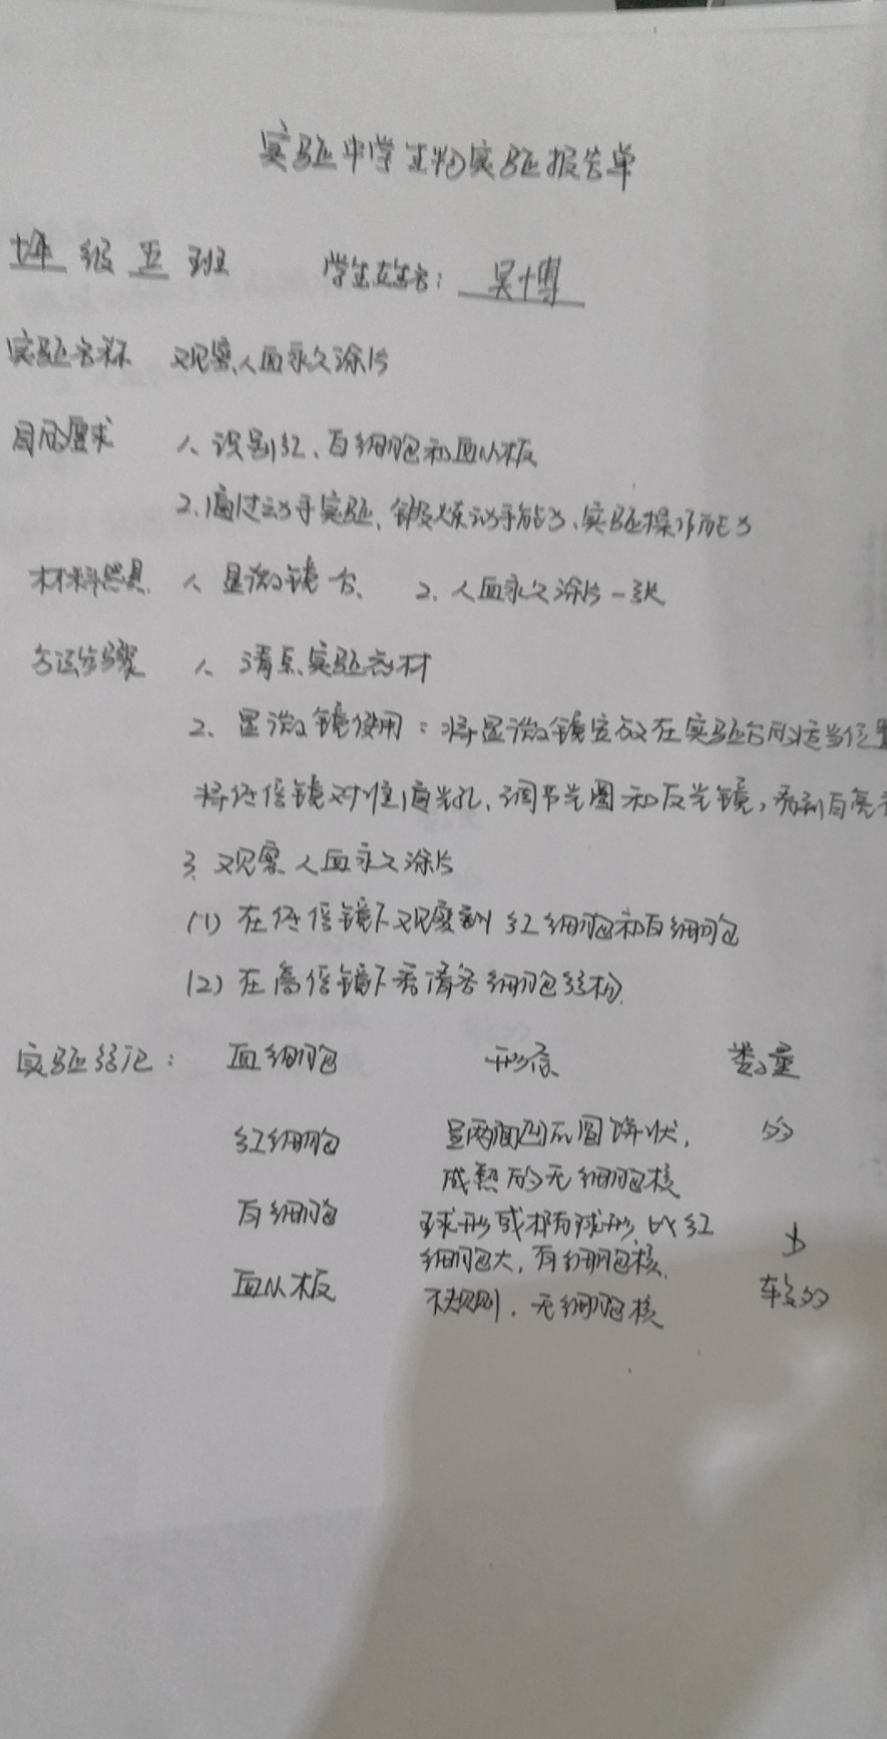 实验中学生物实验报告单
级 五 班 学生姓名: 吴博
实验名称 观察人血永久涂片
目的要求 1、识别红、白细胞和血小板
2.通过动手实验,锻炼动手能力、实验操作能力
材料器具 1、显微镜一台、 2、人血永久涂片一张
方法步骤 1、清点实验器材
2、显微镜使用:将显微镜安放在实验台的适当位置
将低倍镜对准通光孔,调节光圈和反光镜,看到白亮
3.观察人血永久涂片
(1)在低倍镜下观察到红细胞和白细胞
(2)在高倍镜下看清各细胞结构.
实验结记: 血细胞 形态 数量
红细胞 呈两面凹的圆饼状, 多
成熟的无细胞核
白细胞 球形或椭球形,比红 少
细胞大,有细胞核.
血小板 不规则,无细胞核 较多